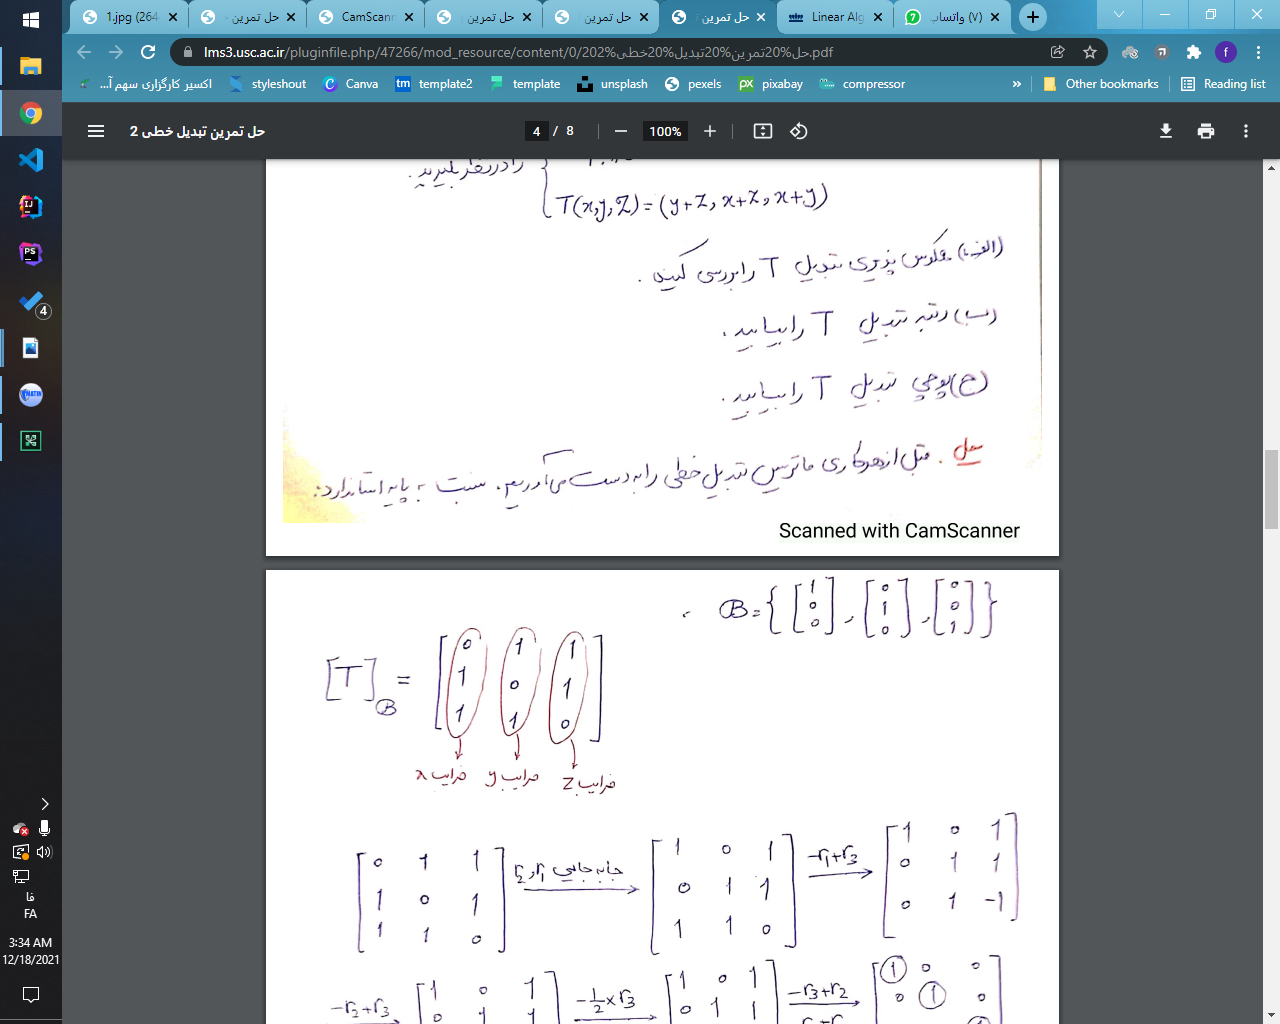 1.jpg (264
حل تمرین
حل تمرین -
CamScann
حل تمرین
حل تمرین
حل تمرین
Linear Alg
واتساپ (۷)
lms3.usc.ac.ir/pluginfile.php/47266/mod_resource/content/0/202%حل%20تمرین%20تبدیل%20خطی.pdf
اکسیر کارگزاری سهم آ...
styleshout
Canva
template2
template
unsplash
pexels
pixabay
compressor
»
Other bookmarks
Reading list
حل تمرین تبدیل خطی 2
4 / 8
100%
را در نظر بگیرید.
T(x,y,z)=(y+z, x+z, x+y)
(الف) معکوس پذیری تبدیل T را بررسی کنید.
(ب) رتبه تبدیل T را بیابید.
(ج) پوچی تبدیل T را بیابید.
حل. قبل از هر کاری ماتریس تبدیل خطی را به دست می‌آوریم. نسبت به پایه استاندارد:
Scanned with CamScanner
B = { [1 0 0], [0 1 0], [0 0 1] }
[T]B = [0 1 1
1 0 1
1 1 0]
ضرایب x ضرایب y ضرایب z
[0 1 1 جابه‌جایی r1 و r2 [1 0 1 -r1+r3 [1 0 1
1 0 1 0 1 1 0 1 1
1 1 0] 1 1 0] 0 1 -1]
-r2+r3 [1 0 1 -1/2×r3 [1 0 1 -r3+r2 [1 0 0
0 1 1 0 1 1 0 1 0
4
فا
FA
3:34 AM
12/18/2021